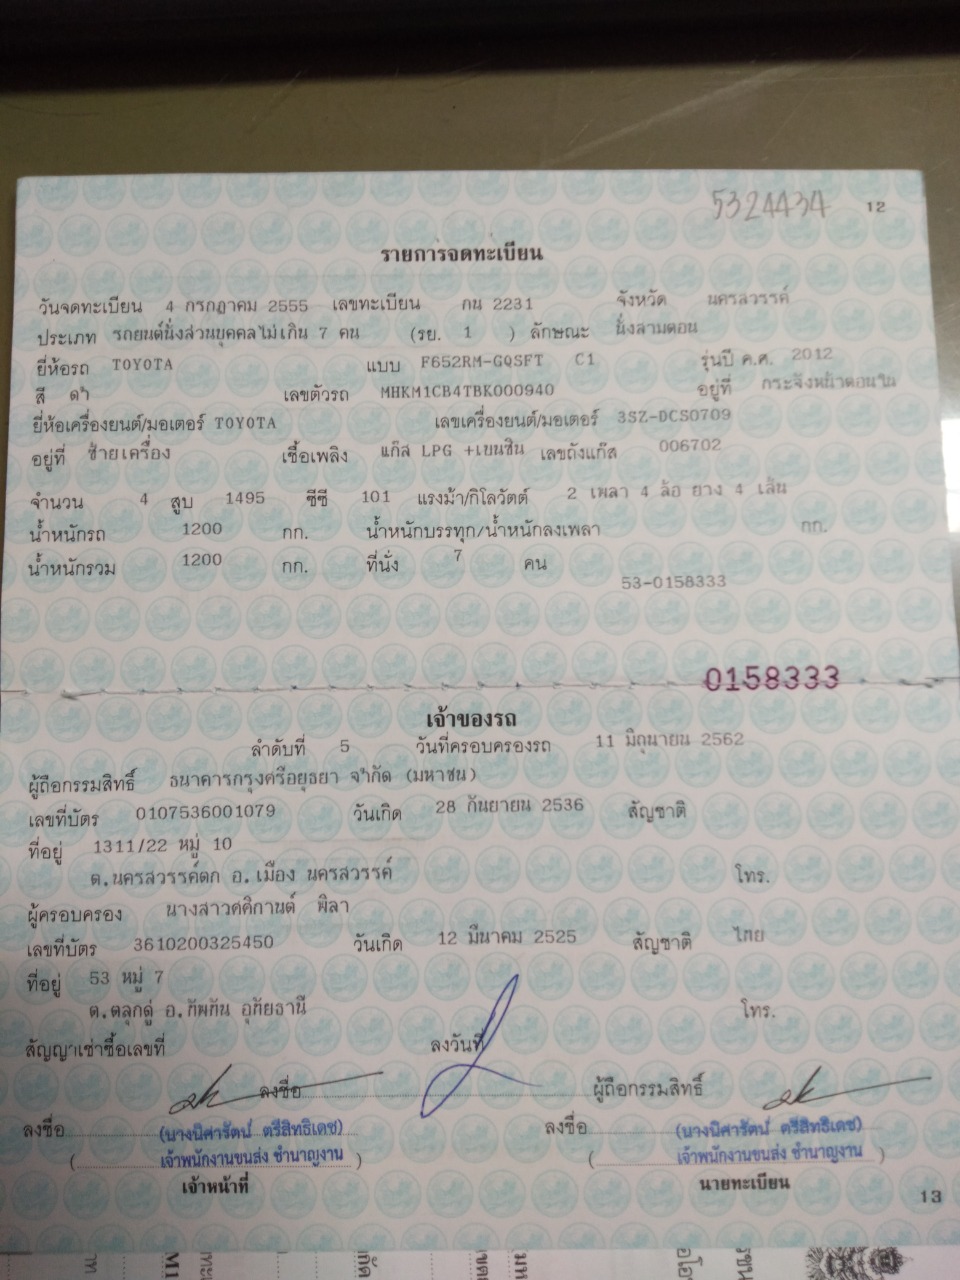 5324434 12
รายการจดทะเบียน
วันจดทะเบียน 4 กรกฎาคม 2555 เลขทะเบียน กน 2231 จังหวัด นครสวรรค์
ประเภท รถยนต์นั่งส่วนบุคคลไม่เกิน 7 คน (รย. 1 ) ลักษณะ นั่งสามตอน
ยี่ห้อรถ TOYOTA แบบ F652RM-GQSFT C1 รุ่นปี ค.ศ. 2012
สี ดำ เลขตัวรถ MHKM1CB4TBK000940 อยู่ที่ กระจังหน้าตอนใน
ยี่ห้อเครื่องยนต์/มอเตอร์ TOYOTA เลขเครื่องยนต์/มอเตอร์ 3SZ-DCS0709
อยู่ที่ ซ้ายเครื่อง เชื้อเพลิง แก๊ส LPG +เบนซิน เลขถังแก๊ส 006702
จำนวน 4 สูบ 1495 ซีซี 101 แรงม้า/กิโลวัตต์ 2 เพลา 4 ล้อ ยาง 4 เส้น
น้ำหนักรถ 1200 กก. น้ำหนักบรรทุก/น้ำหนักลงเพลา กก.
น้ำหนักรวม 1200 กก. ที่นั่ง 7 คน
53-0158333
0158333
เจ้าของรถ
ลำดับที่ 5 วันที่ครอบครองรถ 11 มิถุนายน 2562
ผู้ถือกรรมสิทธิ์ ธนาคารกรุงศรีอยุธยา จำกัด (มหาชน)
เลขที่บัตร 0107536001079 วันเกิด 28 กันยายน 2536 สัญชาติ
ที่อยู่ 1311/22 หมู่ 10
ต.นครสวรรค์ตก อ.เมือง นครสวรรค์ โทร.
ผู้ครอบครอง นางสาวศศิกานต์ พิลา
เลขที่บัตร 3610200325450 วันเกิด 12 มีนาคม 2525 สัญชาติ ไทย
ที่อยู่ 53 หมู่ 7
ต.ตลุกดู่ อ.ทัพทัน อุทัยธานี โทร.
สัญญาเช่าซื้อเลขที่ ลงวันที่
ลงชื่อ ผู้ถือกรรมสิทธิ์
ลงชื่อ (นางนิศารัตน์ ตรีสิทธิเดช) ลงชื่อ (นางนิศารัตน์ ตรีสิทธิเดช)
( เจ้าพนักงานขนส่ง ชำนาญงาน ) ( เจ้าพนักงานขนส่ง ชำนาญงาน )
เจ้าหน้าที่ นายทะเบียน
13